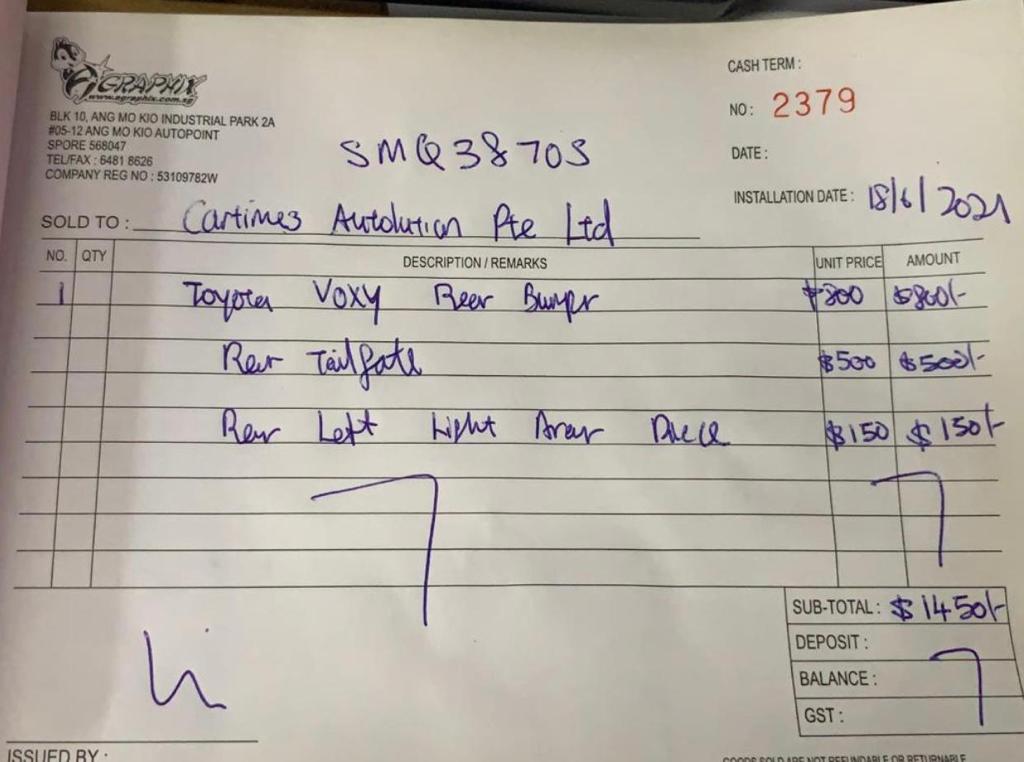 AGRAPHIX
www.agraphix.com.sg
BLK 10, ANG MO KIO INDUSTRIAL PARK 2A
#05-12 ANG MO KIO AUTOPOINT
SPORE 568047
TEL/FAX : 6481 8626
COMPANY REG NO : 53109782W
CASH TERM :
NO : 2379
DATE :
INSTALLATION DATE : 18/6/2021
SMQ3870S
SOLD TO : Cartimes Autolution Pte Ltd
NO. QTY DESCRIPTION / REMARKS UNIT PRICE AMOUNT
1 Toyota Voxy Rear Bumper $800 $800/-
Rear Tailgate $500 $500/-
Rear Left Light Array $150 $150/-
SUB-TOTAL : $1450/-
DEPOSIT :
BALANCE :
GST :
ISSUED BY :
GOODS SOLD ARE NOT REFUNDABLE OR RETURNABLE